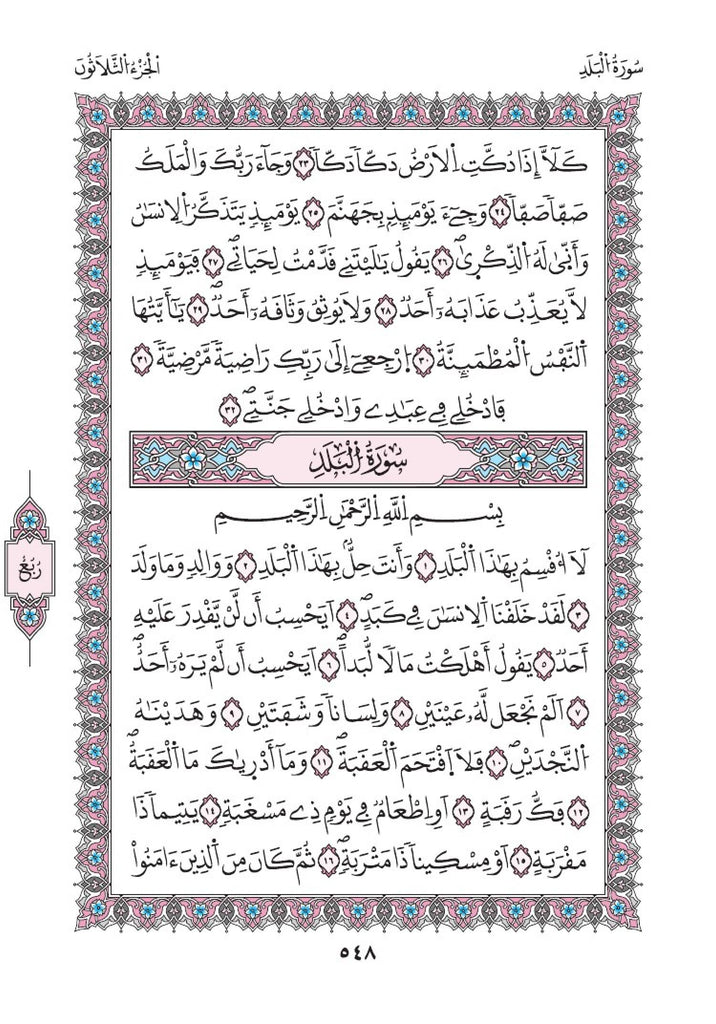 سُورَةُ الْبَلَدِ
الْجُزْءُ الثَّلَاثُونَ
كَلَّآ إِذَا دُكَّتِ اِلَارْضُ دَكّاٗ دَكّاٗ ٢٣ وَجَآءَ رَبُّكَ وَالْمَلَكُ
صَفّاٗ صَفّاٗ ٢٤ وَجِےٓءَ يَوْمَئِذِۢ بِجَهَنَّمَ ٢٥ يَوْمَئِذٖ يَتَذَكَّرُ اُلِانسَٰنُ
وَأَنّ۪ىٰ لَهُ اُلذِّكْر۪ىٰۖ ٢٦ يَقُولُ يَٰلَيْتَنِے قَدَّمْتُ لِحَيَاتِےۖ ٢٧ فَيَوْمَئِذٖ
لَّا يُعَذِّبُ عَذَابَهُۥٓ أَحَدٞ ٢٨ وَلَا يُوثِقُ وَثَاقَهُۥٓ أَحَدٞۖ ٢٩ يَٰٓأَيَّتُهَا
اَلنَّفْسُ اُلْمُطْمَئِنَّةُ ٣٠ اُ۪رْجِعِےٓ إِلَىٰ رَبِّكِ رَاضِيَةٗ مَّرْضِيَّةٗ ٣١
فَادْخُلِے فِے عِبَٰدِے وَادْخُلِے جَنَّتِےۖ ٣٢
سُورَةُ الْبَلَدِ
بِسْمِ اِللَّهِ اِلرَّحْمَٰنِ اِلرَّحِيمِ
لَآ أُقْسِمُ بِهَٰذَا اَلْبَلَدِ ١ وَأَنتَ حِلُّۢ بِهَٰذَا اَلْبَلَدِ ٢ وَوَالِدٖ وَمَا وَلَدَ
٣ لَقَدْ خَلَقْنَا اَلِانسَٰنَ فِے كَبَدٍۖ ٤ اَيَحْسِبُ أَن لَّنْ يَّقْدِرَ عَلَيْهِ
أَحَدٞۖ ٥ يَقُولُ أَهْلَكْتُ مَالاٗ لُّبَداًۖ ٦ اَيَحْسِبُ أَن لَّمْ يَرَهُۥٓ أَحَدٌۖ
٧ اَلَمْ نَجْعَل لَّهُۥ عَيْنَيْنِ ٨ وَلِسَاناٗ وَشَفَتَيْنِ ٩ وَهَدَيْنَٰهُ
اُلنَّجْدَيْنِۖ ١٠ فَلَا اَقْتَحَمَ اَلْعَقَبَةَۖ ١١ وَمَآ أَدْر۪يٰكَ مَا اَلْعَقَبَةُۖ
١٢ فَكُّ رَقَبَةٍ ١٣ اَوِ اِطْعَٰمٞ فِے يَوْمٖ ذِے مَسْغَبَةٖ ١٤ يَتِيماٗ ذَا
مَقْرَبَةٍ ١٥ اَوْ مِسْكِيناٗ ذَا مَتْرَبَةٖۖ ١٦ ثُمَّ كَانَ مِنَ اَلذِينَ ءَامَنُواْ
رُبُعُ
٥٤٨